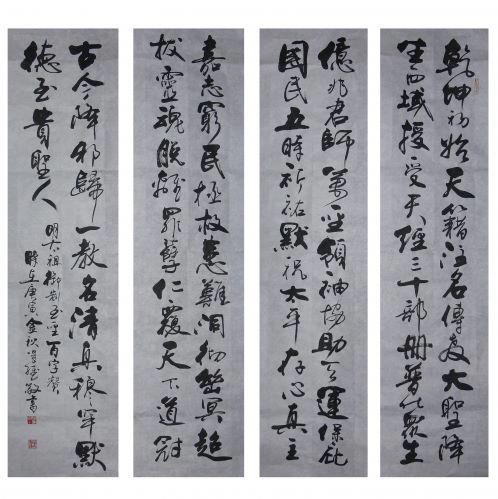 乾坤初始天籍注名傳教大聖降
生西域授受天經三十部冊普化眾生
億兆君師萬圣領袖協助天運保庇
國民五時祈祐默祝太平存心真主
嘉志窮民極救患難洞彻幽冥超
拔靈魂脫離罪孽仁覆天下道冠
古今降邪歸一教名清真穆罕默
德至貴聖人
明太祖御制至聖百字贊
時在庚寅金秋敬書